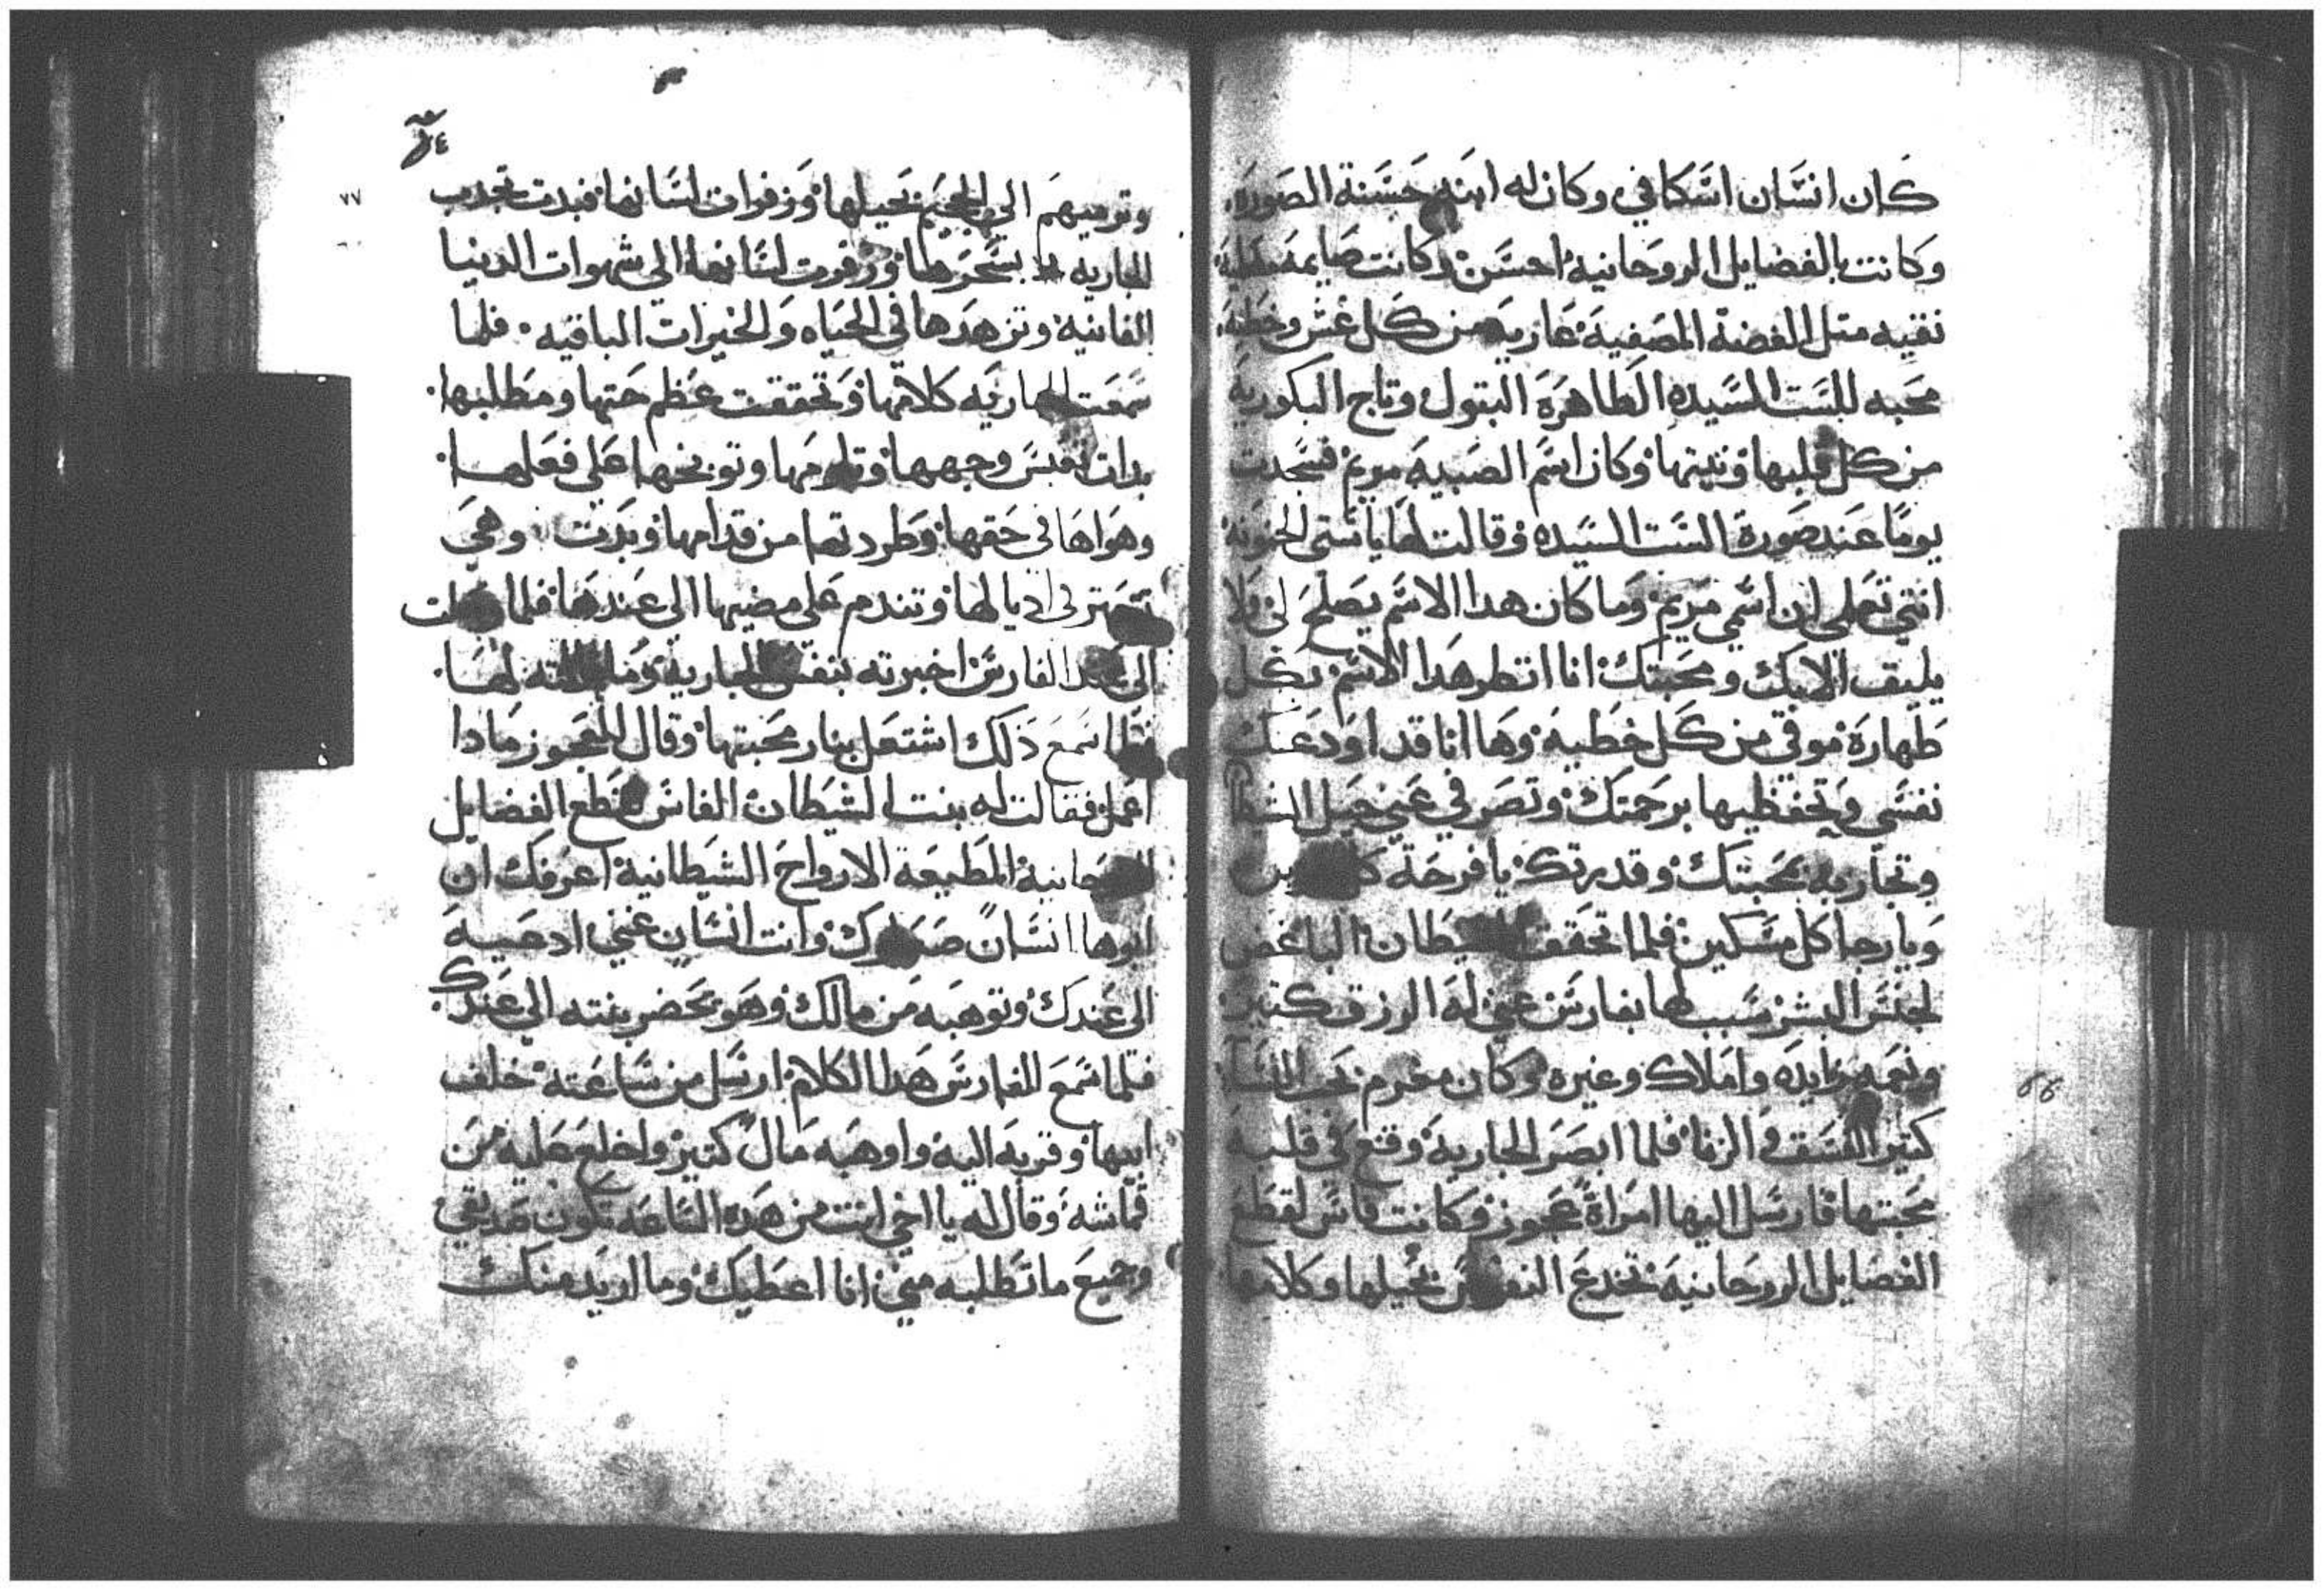 كان انسان اسكافي وكان له ابنه حسنة الصوره
وكانت بالفضايل الروحانية احسن وكانت صايمه
نقيه متل الفضة المصفية عاريه من كل غش وخطية
محبه للست السيده الطاهرة البتول وتاج البكورية
من كل قلبها ونيتها وكان اسم الصبيه مريم فسجدت
يوما عند صورة الست السيده وقالت لها يا ستي الحنونه
انتي تعلمي ان اسمي مريم وما كان هدا الاسم يصلح لي ولا
يليق الا بك ومحبتك انا انطر هدا الاسم بكل
طهارة موقي من كل خطية وها انا قد اودعتك
نفسي وتحفظيها برحمتك وتصرفي عني حيل الشيطا
وتجاربه بمحبتك وقدرتك يا فرحة
ويا رجا كل مسكين فلما تحقق الشيطان الباغض
لجنس البشر سبب لها بفارس غني له الرزق كتير
ونعمه زايده واملاك وغيره وكان مغرم بحب النسا
كتير الفسق والزنا فلما ابصر الجارية وقع في قلبه
محبتها فارسل اليها امراة عجوز وكانت فاس لقطع
الفضايل الروحانيه تخدع النفوس بحيلها وكلامها
٧٤
٧٧
وترميهم الي الجحيم بحيلها وزفرات لسانها فبدت تجدب
الجاريه بسحرها وزفرت لسانها الى شهوات الدنيا
الفانية وتزهدها في الحياه والخيرات الباقيه فلما
سمعت الجاريه كلامها وتحققت عظم حتها ومطلبها
بدات تعبس وجهها وتلومها وتوبخها على فعلها
وهواها في حقها وطردتها من قدامها وبدت وهي
تتعتر في اديالها وتندم على مضيها الى عندها فلما وصلت
الى عند الفارس اخبرته بنفس الجاريه وما قالته لها
فلما سمع ذلك اشتعل بنار محبتها وقال للعجوز مادا
اعمل فقالت له بنت الشيطان الفاس لقطع الفضايل
الروحانية المطيعة الارواح الشيطانية اعرفك ان
ابوها انسان صعلوك وانت انسان غني ادعيه
الى عندك وتوهبه من مالك وهو يحضر بنته الي عندك
فلما سمع الفارس هدا الكلام ارسل من ساعته خلف
ابيها وقربه اليه واوهبه مال كتير واخلع عليه من
قماشه وقال له يا اخي انت من هده الساعه تكون صديقي
وجميع ما تطلبه مني انا اعطيك وما اريد منك
٦٦